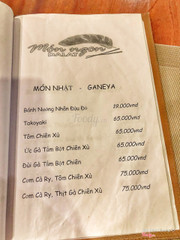 Món ngon
DALAT
MÓN NHẬT - GANEYA
Bánh Nướng Nhân Đậu Đỏ 59,000vnđ
Takoyaki 65,000vnđ
Tôm Chiên Xù 65,000vnđ
Ức Gà Tẩm Bột Chiên Xù 65,000vnđ
Đùi Gà Tẩm Bột Chiên 65,000vnđ
Cơm Cà Ry, Tôm Chiên Xù 75,000vnđ
Cơm Cà Ry, Thịt Gà Chiên Xù 75,000vnđ